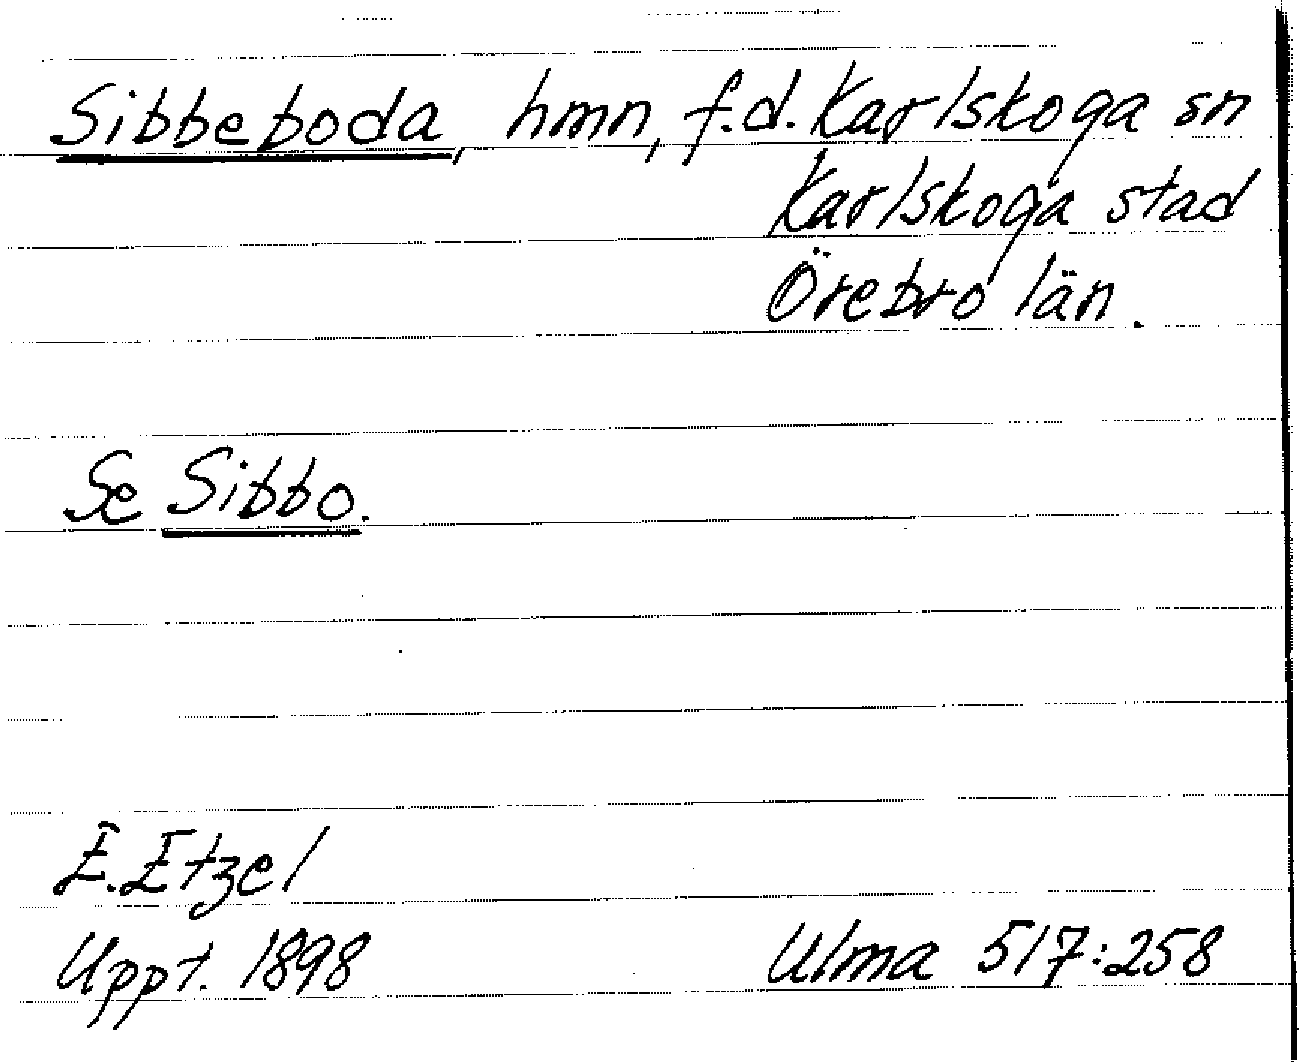 Sibbeboda, hmn, f.d. Karlskoga sn
Karlskoga stad
Örebro län.
Se Sibbo.
E. Etzel
Uppt. 1898
Ulma 517:258